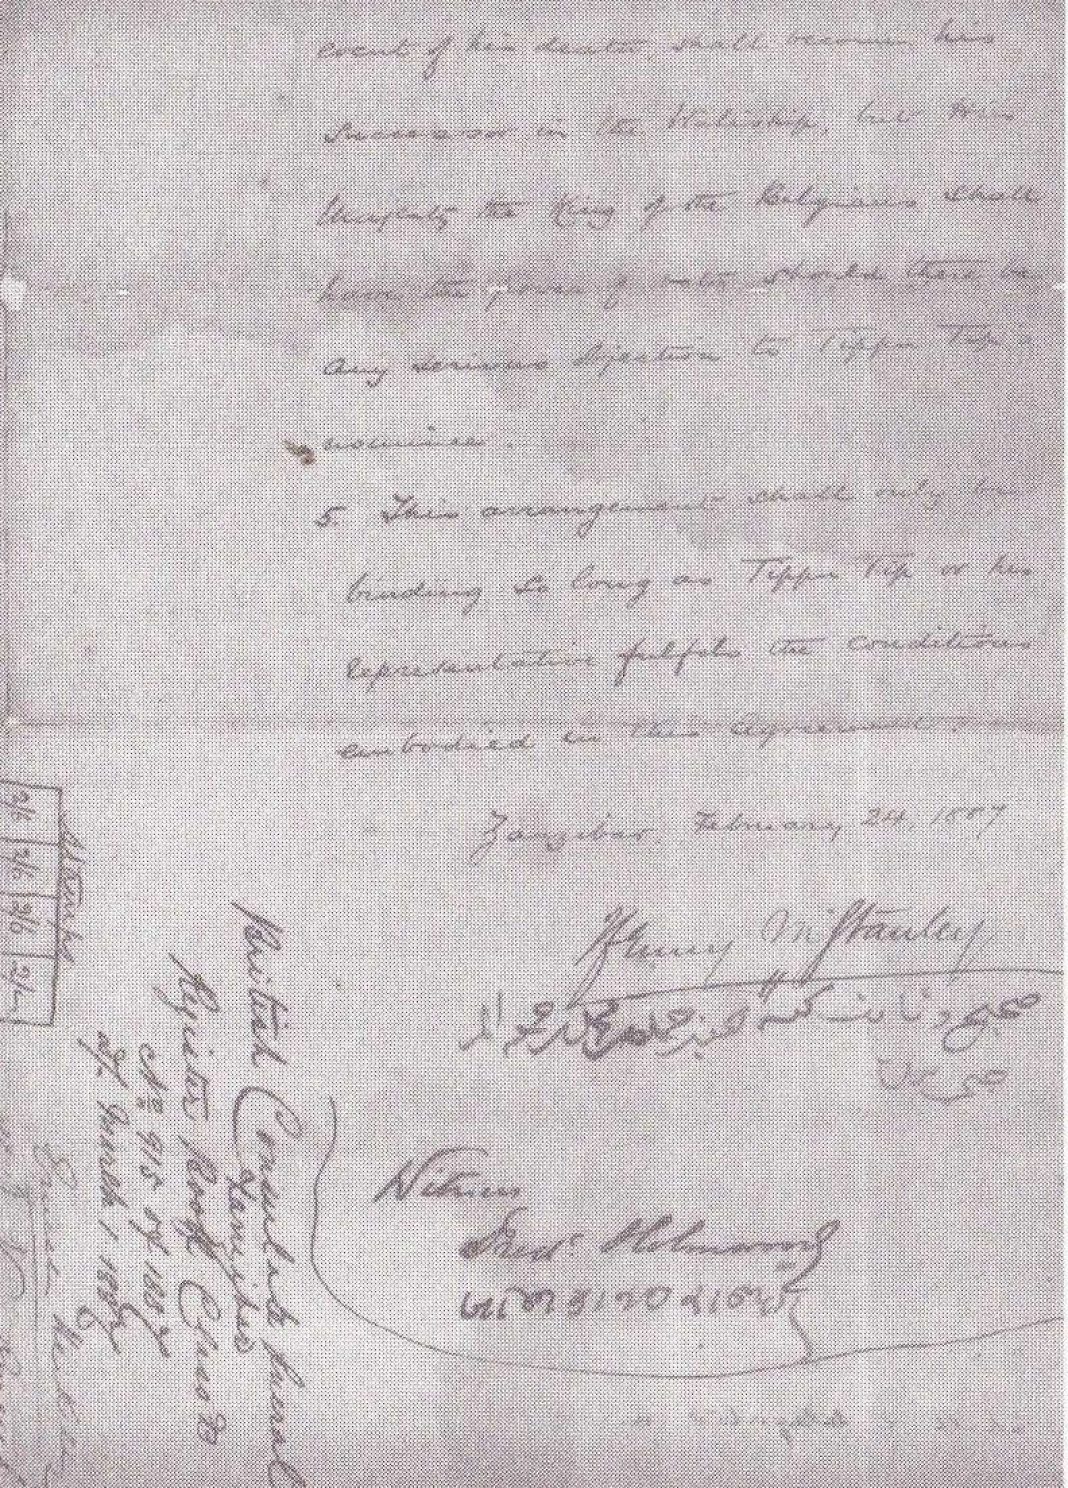 event of his death, shall become his
successor in the Waliship, but His
Majesty the King of the Belgians shall
have the power of veto should there be
any serious objection to Tippu Tip's
nominee.
5. This arrangement shall only be
binding so long as Tippu Tip or his
representative fulfils the conditions
embodied in this Agreement.
Zanzibar, February 24, 1887
Henry M Stanley
Witness
Fredc. Holmwood
British Consulate General
Zanzibar
Register Book Class B
No 915 of 1887
of March 1 1887
Stamps
2/6 2/6 2/6